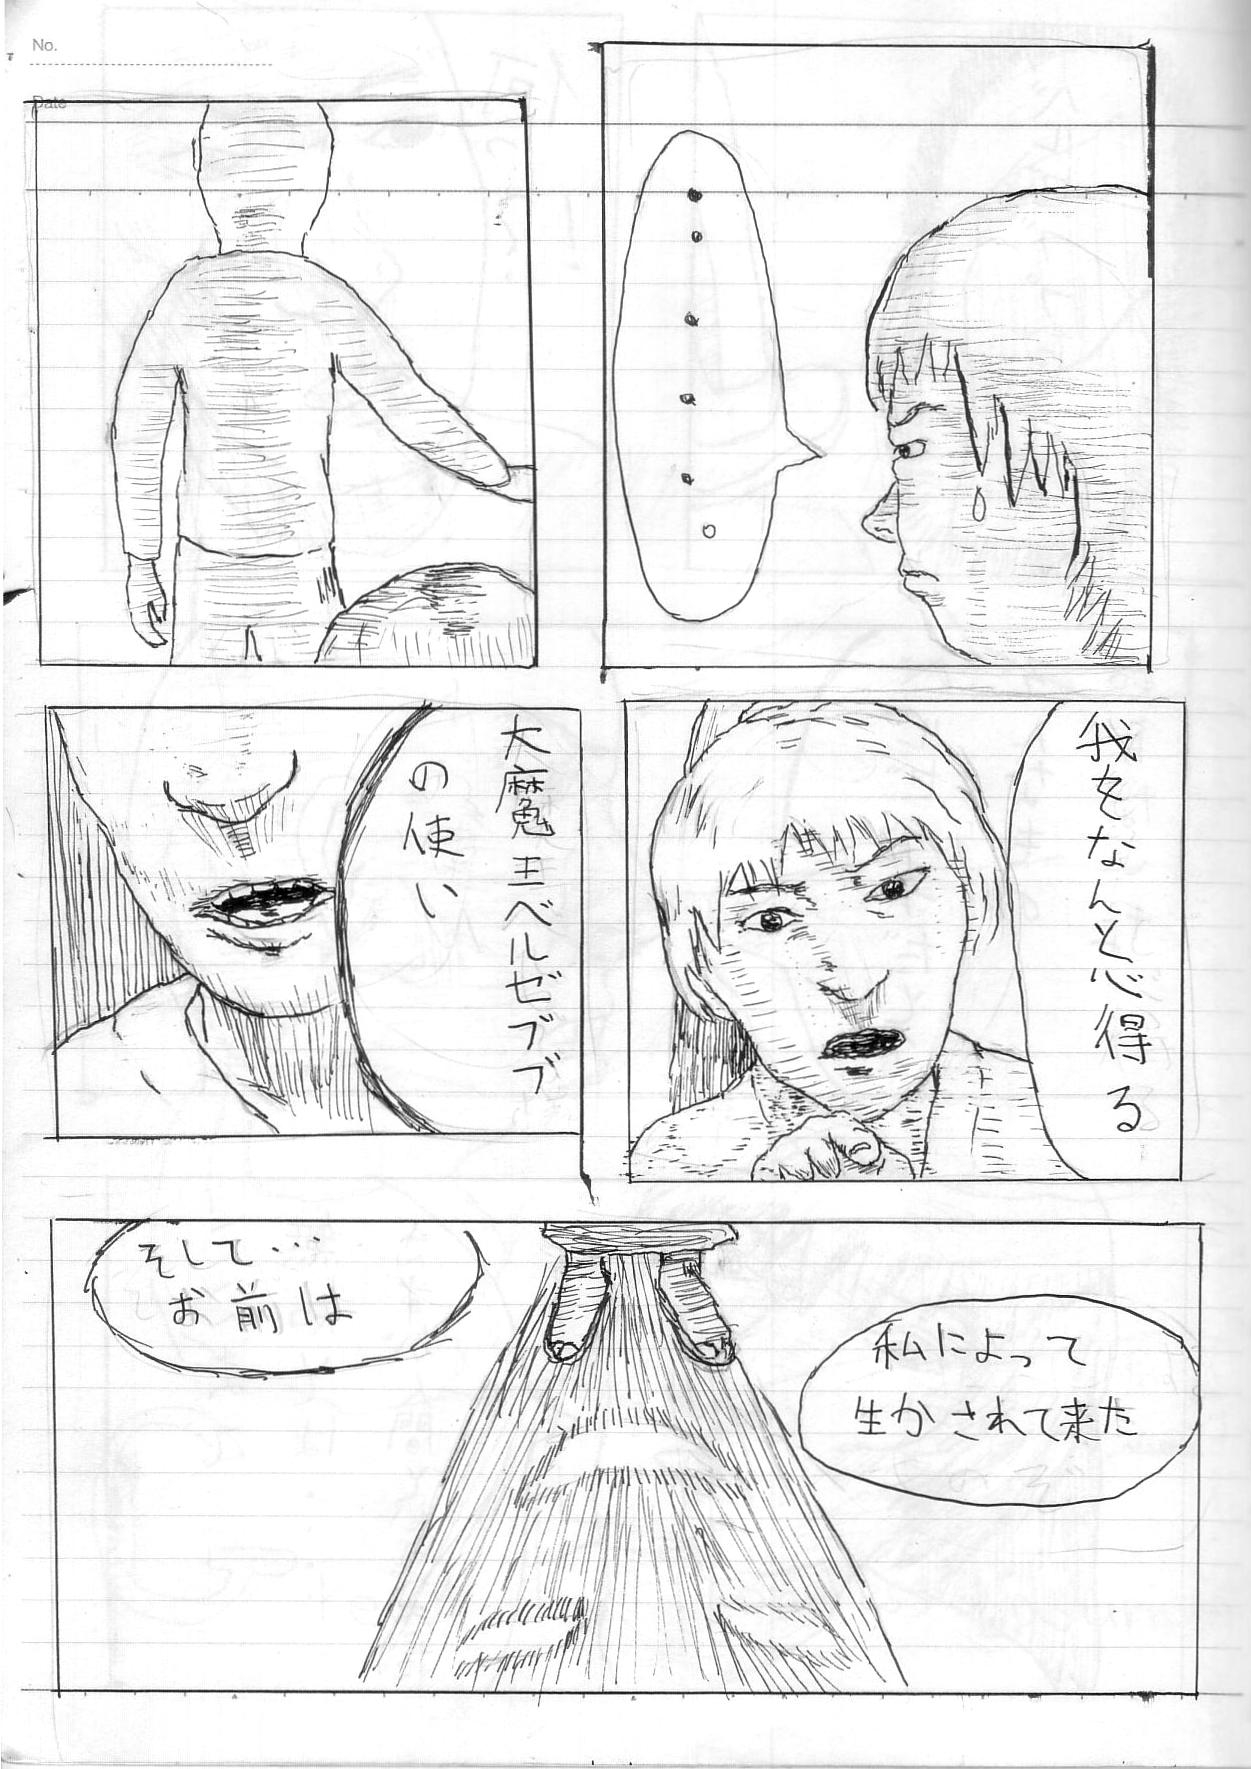 No.
Date
・・・・・。
我をなんと心得る
大魔王ベルゼブブ
の使い
私によって
生かされて来た
そして…
お前は